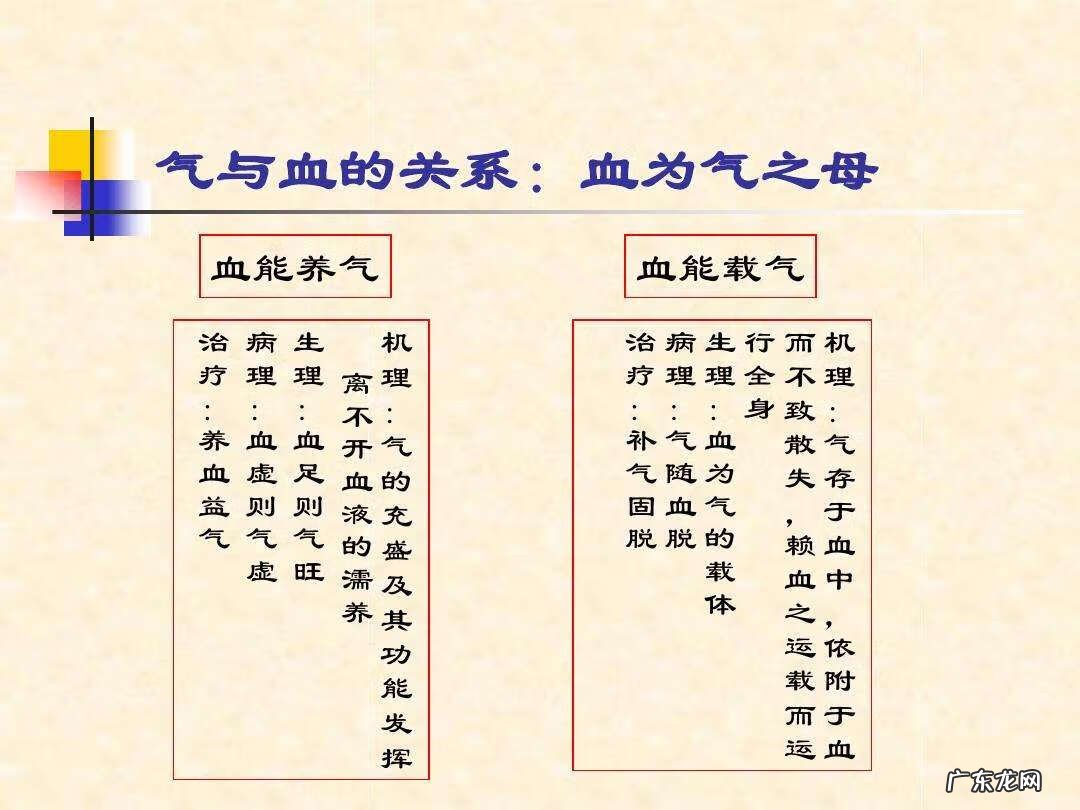 气与血的关系：血为气之母
血能养气
机理：气的充盛及其功能发挥
离不开血液的濡养
生理：血足则气旺
病理：血虚则气虚
治疗：养血益气
血能载气
机理：气存于血中，依附于血
而不致散失，赖血之运载而运
行全身
生理：血为气的载体
病理：气随血脱
治疗：补气固脱
广东龙网